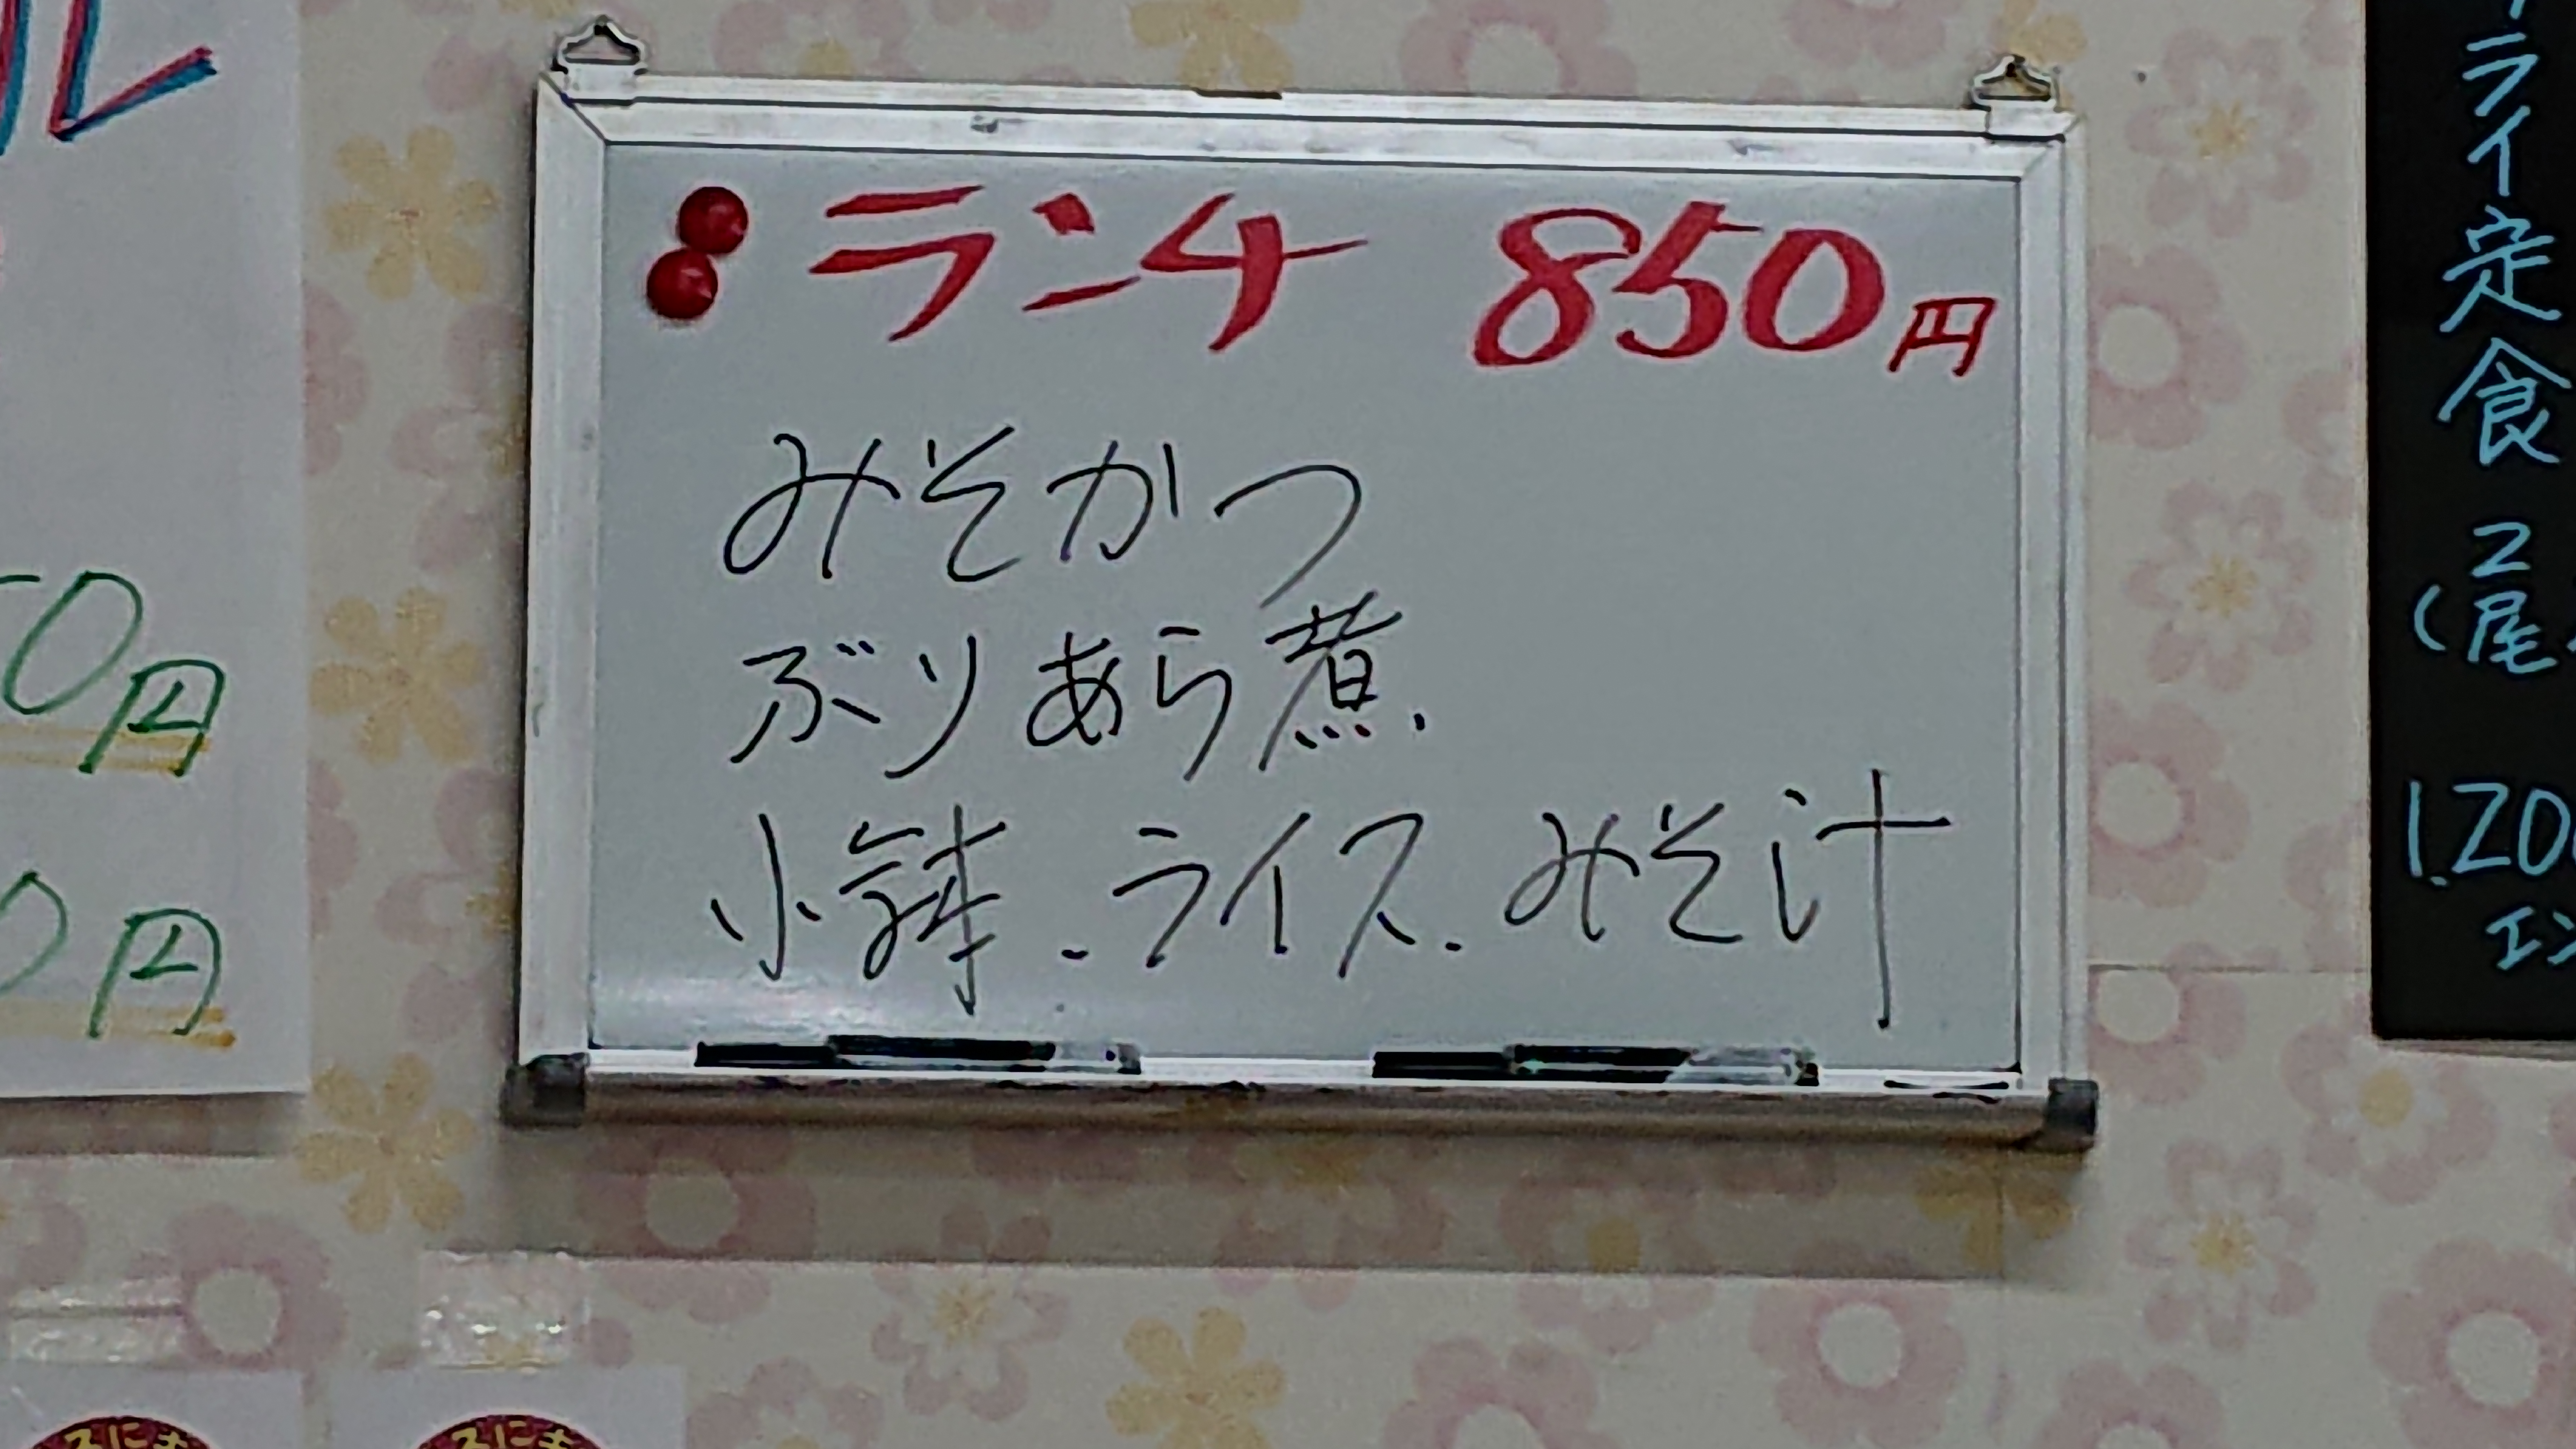 ル
50円
0円
ランチ 850円
みそかつ
ぶりあら煮.
小鉢.ライス.みそ汁
ライ定食
(2尾
1.200
エン